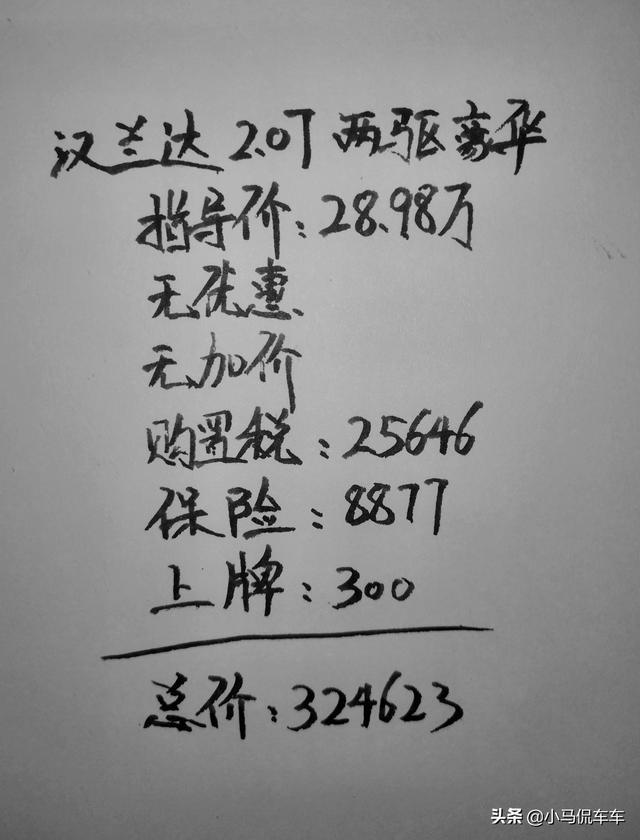 汉兰达 2.0T 两驱豪华
指导价：28.98万
无优惠
无加价
购置税：25646
保险：8877
上牌：300
总价：324623
头条 @小马侃车车